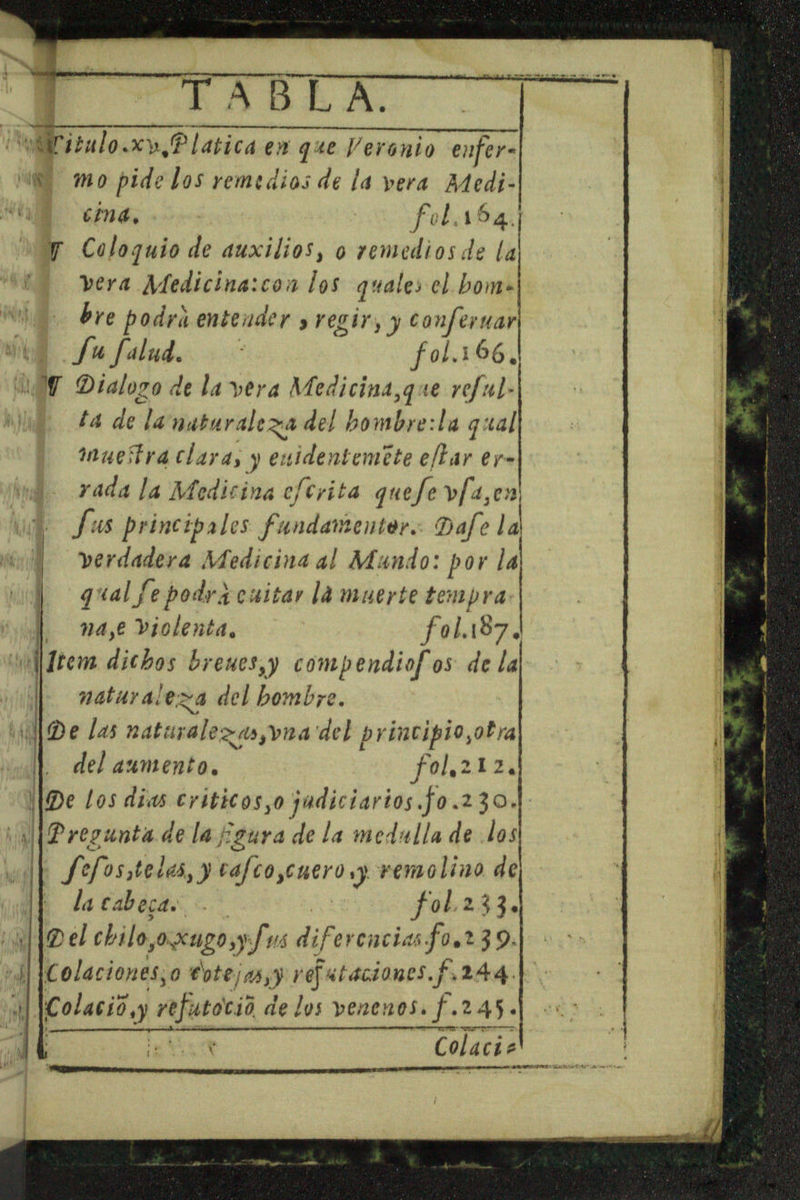 TABLA.
Titulo.xv.Platica en que Veronio enfer-
mo pide los remedios de la vera Medi-
cina. fol.164.
¶ Coloquio de auxilios, o remedios de la
vera Medicina:con los quales el hom-
bre podrà entender, regir, y conseruar
su salud. fol.166.
¶ Dialogo de la vera Medicina,que resul-
ta de la naturaleza del hombre:la qual
muestra clara, y euidentemẽte estar er-
rada la Medicina escrita que se vsa,en
sus principales fundamentos. Dase la
verdadera Medicina al Mundo: por la
qual se podrà euitar la muerte tempra-
na,e violenta. fol.187.
Item dichos breues,y compendiosos de la
naturaleza del hombre.
De las naturalezas,vna del principio,otra
del aumento. fol.212.
De los dias criticos,o judiciarios.fo.230.
Pregunta de la figura de la medulla de los
sesos,telas, y casco,cuero,y remolino de
la cabeça. fol.233.
Del chilo,o xugo,y sus diferencias fo.239.
Colaciones,o cotejas,y refutaciones.f.244.
Colaciõ,y refutaciõ de los venenos. f.245.
Colacio